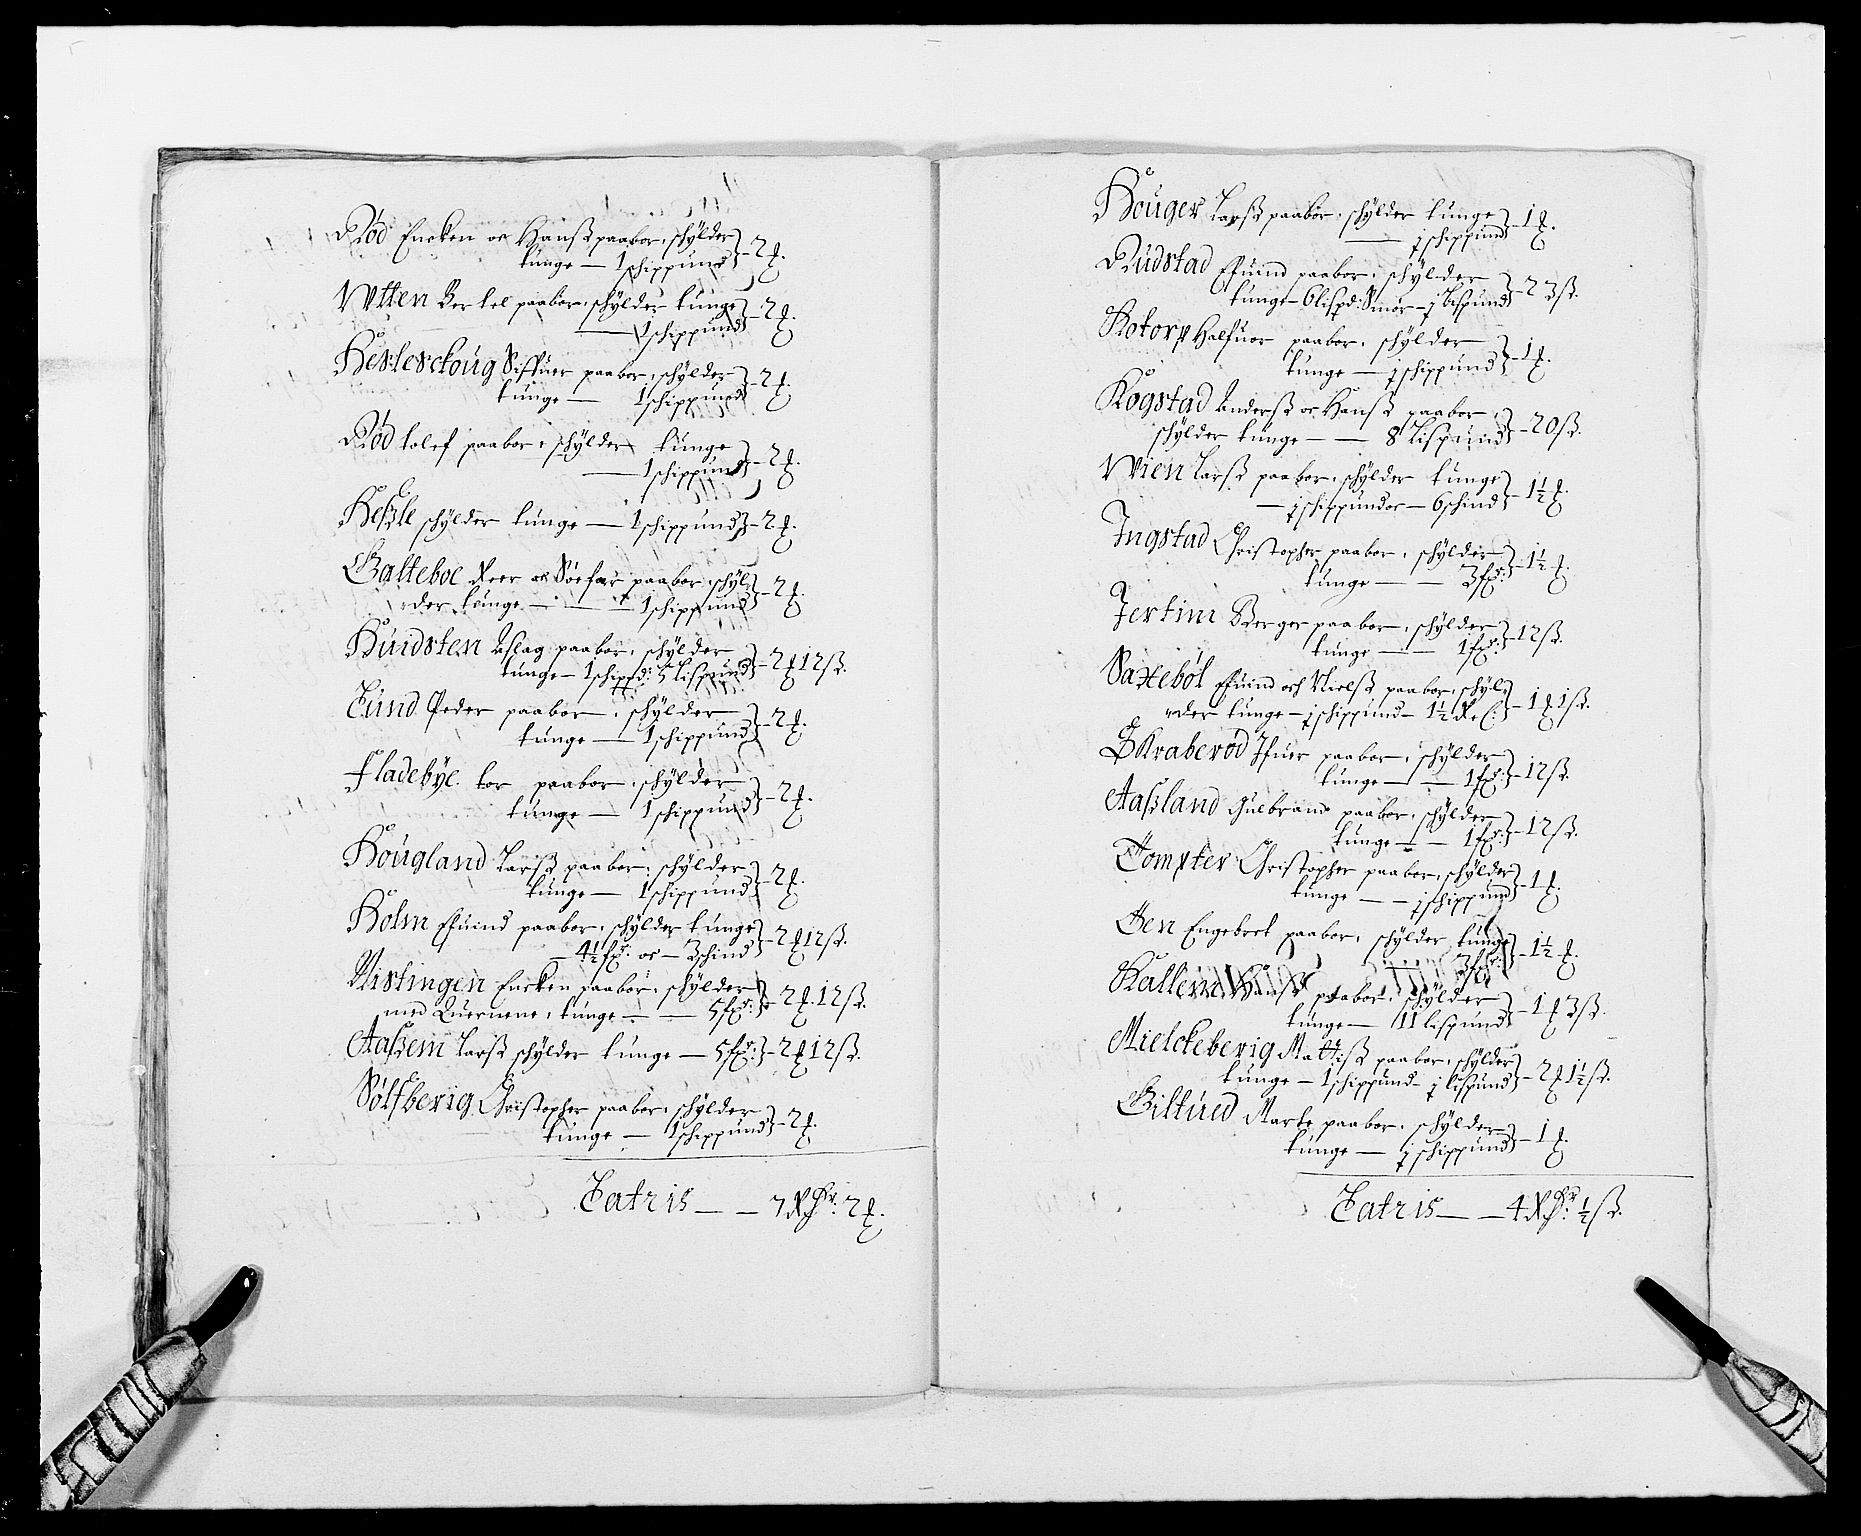 Rød Encken oc Hanß paabor, schylder
tunge — 1 schippund } - 2 ʠ.
Wtten Bertel paabor, schylder tunge
— 1 schippund } - 2 ʠ.
Siffuer paabor, schylder
tunge — 1 schippund } - 2 ʠ.
Rød tolef paabor, schylder tunge
— 1 schippund } - 2 ʠ.
Heßle schylder tunge — 1 schippund } - 2 ʠ.
Galteboe Peer oc paabor, schyl
der tunge — 1 schippund } - 2 ʠ.
Huidsten Aslag paabor, schylder
tunge — 1 schipd: 5 lispund } - 2 ʠ 12 ß.
Lund Peder paabor, schylder
tunge — 1 schippund } - 2 ʠ.
Fladebÿe tor paabor, schylder
tunge — 1 schippund } - 2 ʠ.
Hougland Larß paabor, schylder
tunge — 1 schippund } - 2 ʠ.
Holm Efuind paabor, schylder tunge
— 4½ fr: oc — 3 schind } - 2 ʠ 12 ß.
Nistingen Encken paabor, schylder
med Quernene, tunge — 5 fr: } - 2 ʠ. 12 ß.
Aaßem Larß schylder tunge — 5 fr: } - 2 ʠ 12 ß.
Sølfberig Christopher paabor, schylder
tunge — 1 schippund } - 2 ʠ.
Latris — — 7 Rdr. 2 ʠ.
Houger Larß paabor, schylder tunge
— j schippund } - 1 ʠ.
Rudstad Efuind paabor, schylder
tunge — 6 lispd: Smør — j bispund } - 23 ß.
Kotorp Halfuor paabor, schylder
tunge — j schippund } - 1 ʠ.
Kogstad Anderß oc Hanß paabor,
schylder tunge — — 8 lispund } - 20 ß.
Wien Larß paabor, schylder tunge
— j schippund oc — 6 schind } - 1½ ʠ.
Ingstad Christopher paabor, schylder
tunge — — 3 fr: } - 1½ ʠ.
Jertini Berger paabor, schylder
tunge — — 1 fr: } - 12 ß.
Saxebøl Efuind och Nielß paabor, schyl
der tunge — j schippund — 1½ } - 1 ʠ 1 ß.
Skraberød Ifuer paabor, schylder
tunge — — 1 fr: } - 12 ß.
Aaßland Gulbrand paabor, schylder
tunge — — 1 fr: } - 12 ß.
Tompter Christopher paabor, schylder
tunge — — j schippund } - 1 ʠ.
Engebret paabor, schylder tunge
3 fr: } - 1½ ʠ.
Kallem Hanß paabor, schylder
tunge — 11 lispund } - 1 ʠ 3 ß.
Mielckeberig Mattiß paabor, schylder
tunge — 1 schippund — j lispund } - 2 ʠ 1½ ß.
Giltued Marte paabor, schylder
tunge — j schippund } - 1 ʠ.
Latris — — 4 Rdr: ½ ß.